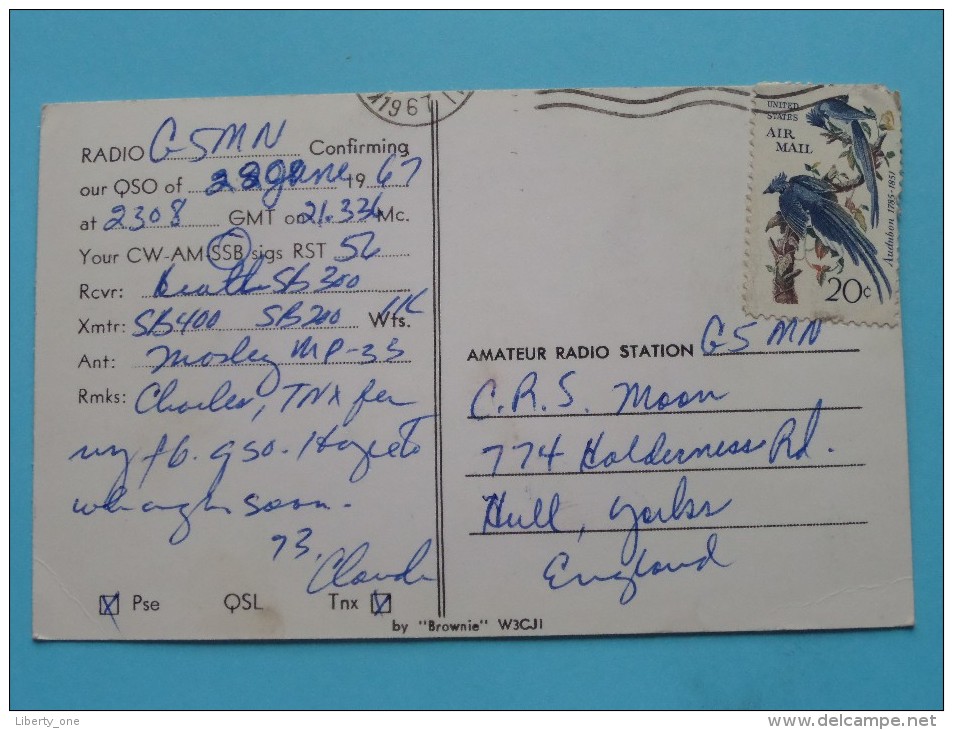 1967
RADIO G5MN Confirming
our QSO of 22 June 1967
at 2308 GMT on 21.336 Mc.
Your CW-AM-SSB sigs RST 56
Rcvr: Heath SB300
Xmtr: SB400 SB200 Wts.
Ant: Mosley MP-33
Rmks: Charles, TNX fer
my fb. qso. Hope to
wk agn soon.
73,
Claude
Pse QSL Tnx
by "Brownie" W3CJI
UNITED
STATES
AIR
MAIL
Audubon 1785-1851
20c
AMATEUR RADIO STATION G5MN
C.R.S. Moon
774 Holderness Rd.
Hull, Yorks
England
Liberty_one
www.delcampe.net